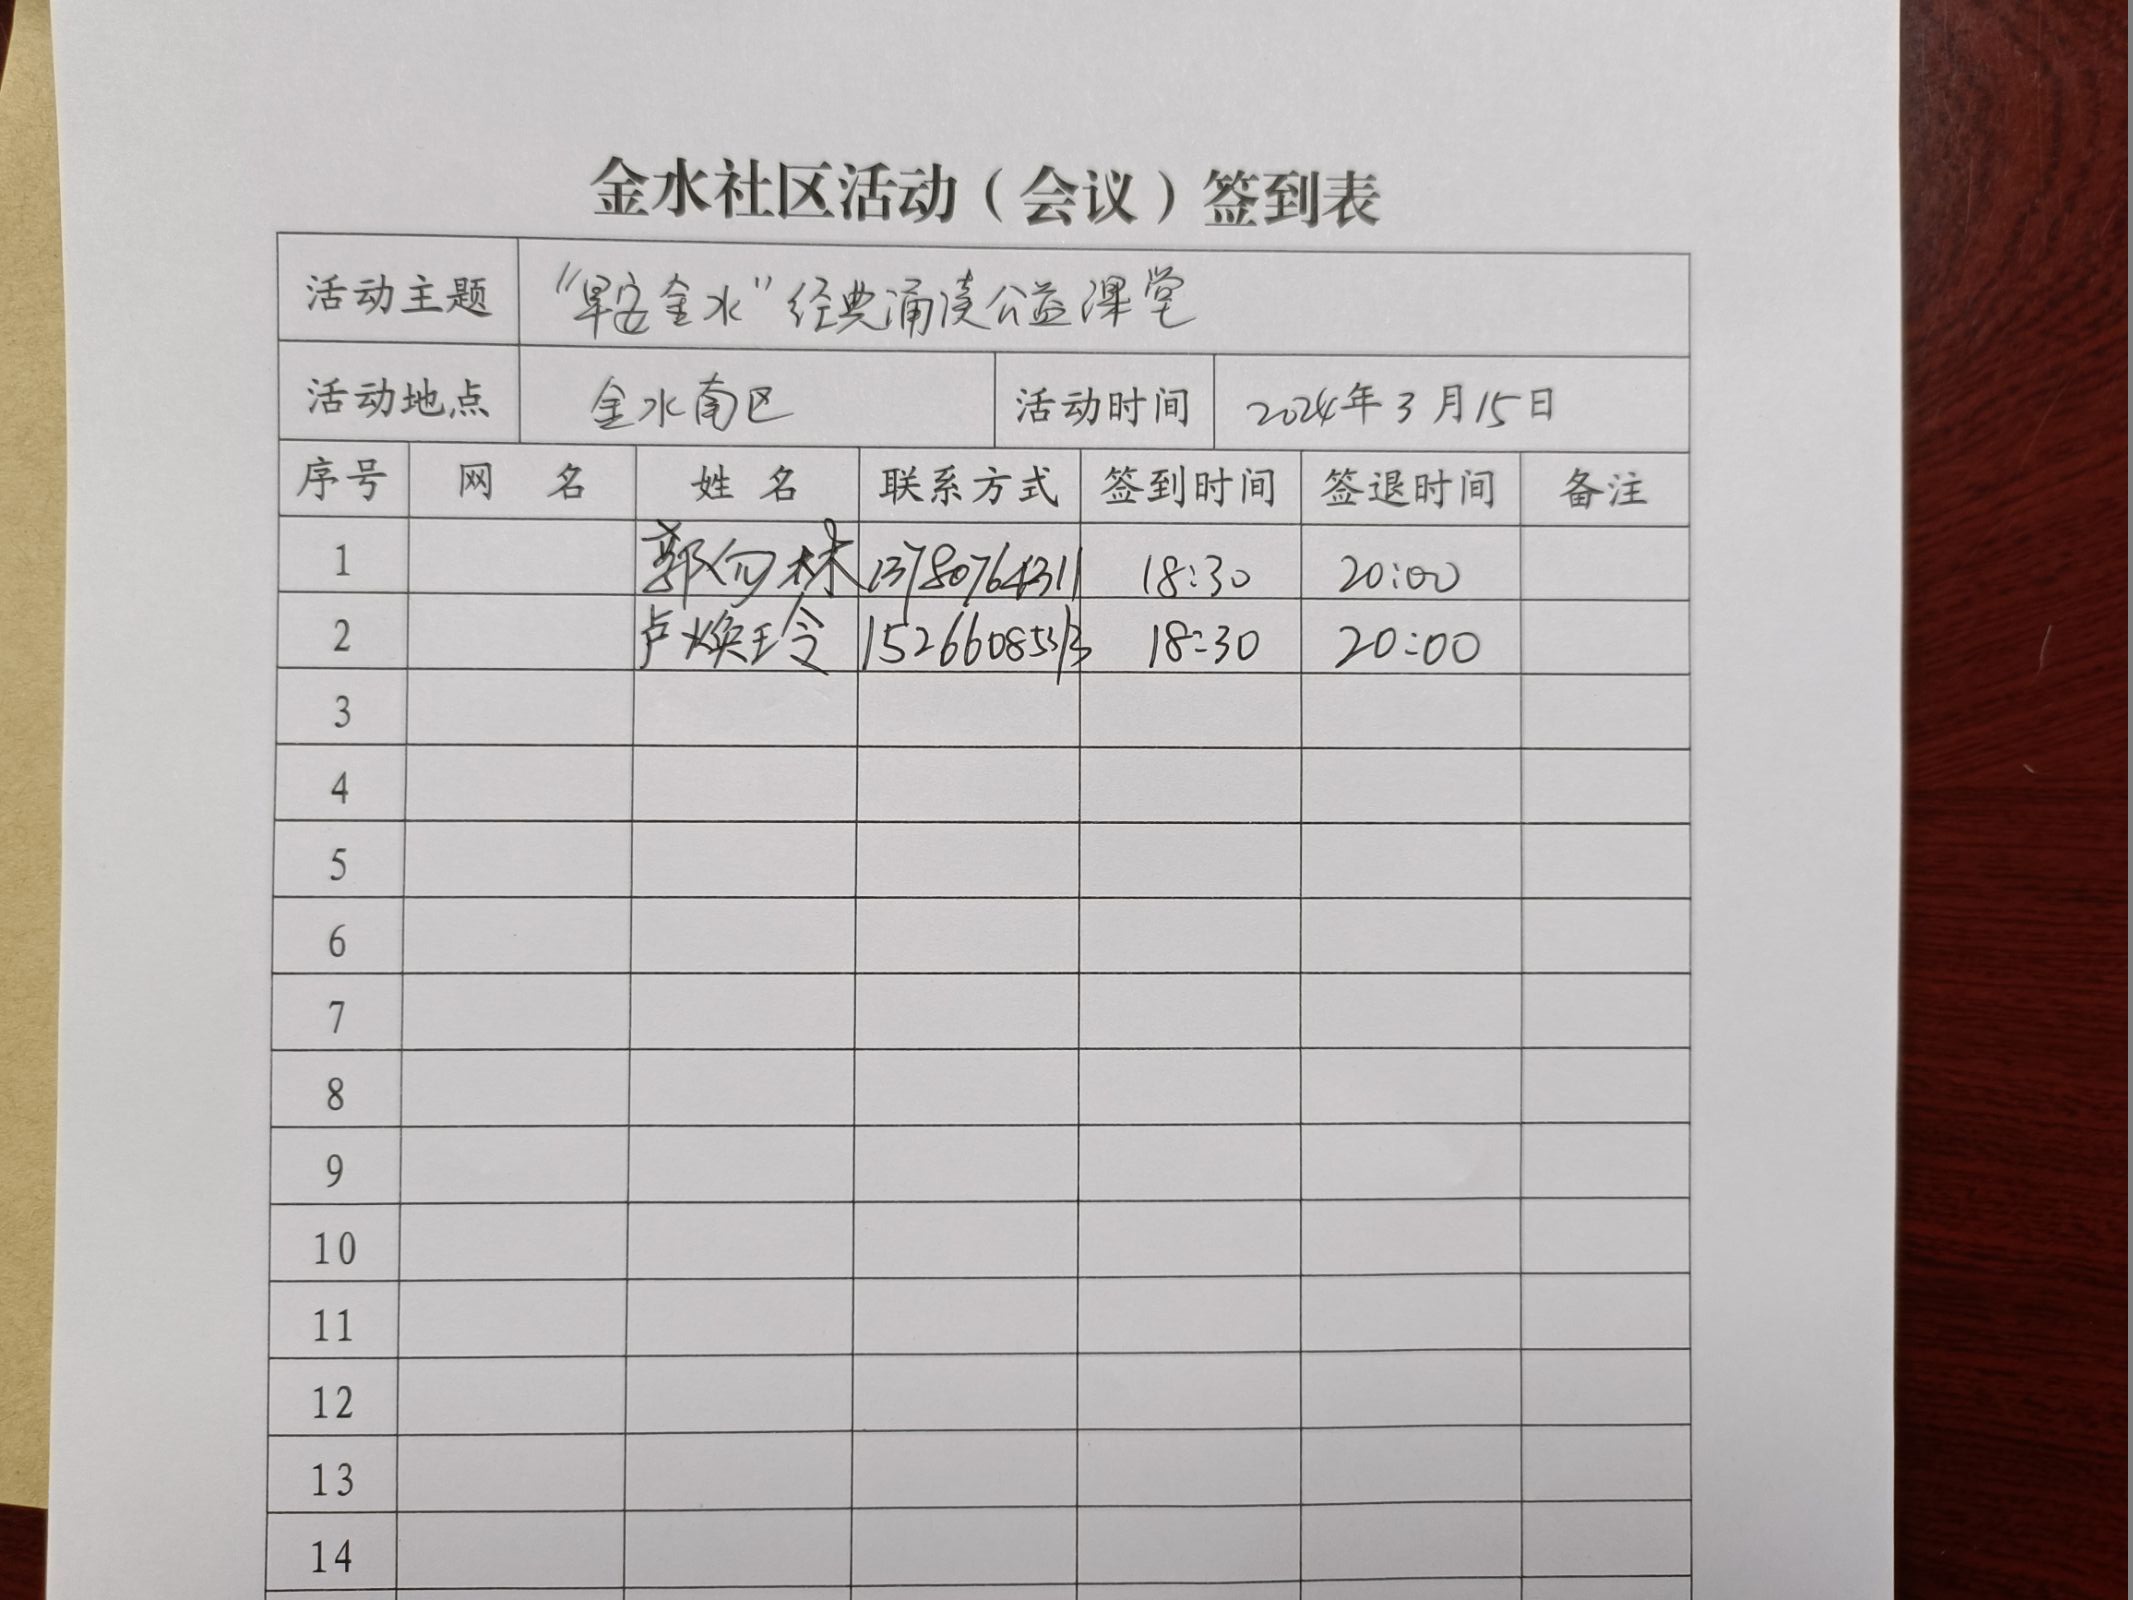 金水社区活动（会议）签到表
活动主题 "早安金水"经典诵读公益课堂
活动地点 金水南区 活动时间 2024年3月15日
序号 网 名 姓 名 联系方式 签到时间 签退时间 备注
1 郭 林 13780764311 18:30 20:00
2 卢焕玲 15266085313 18:30 20:00
3
4
5
6
7
8
9
10
11
12
13
14